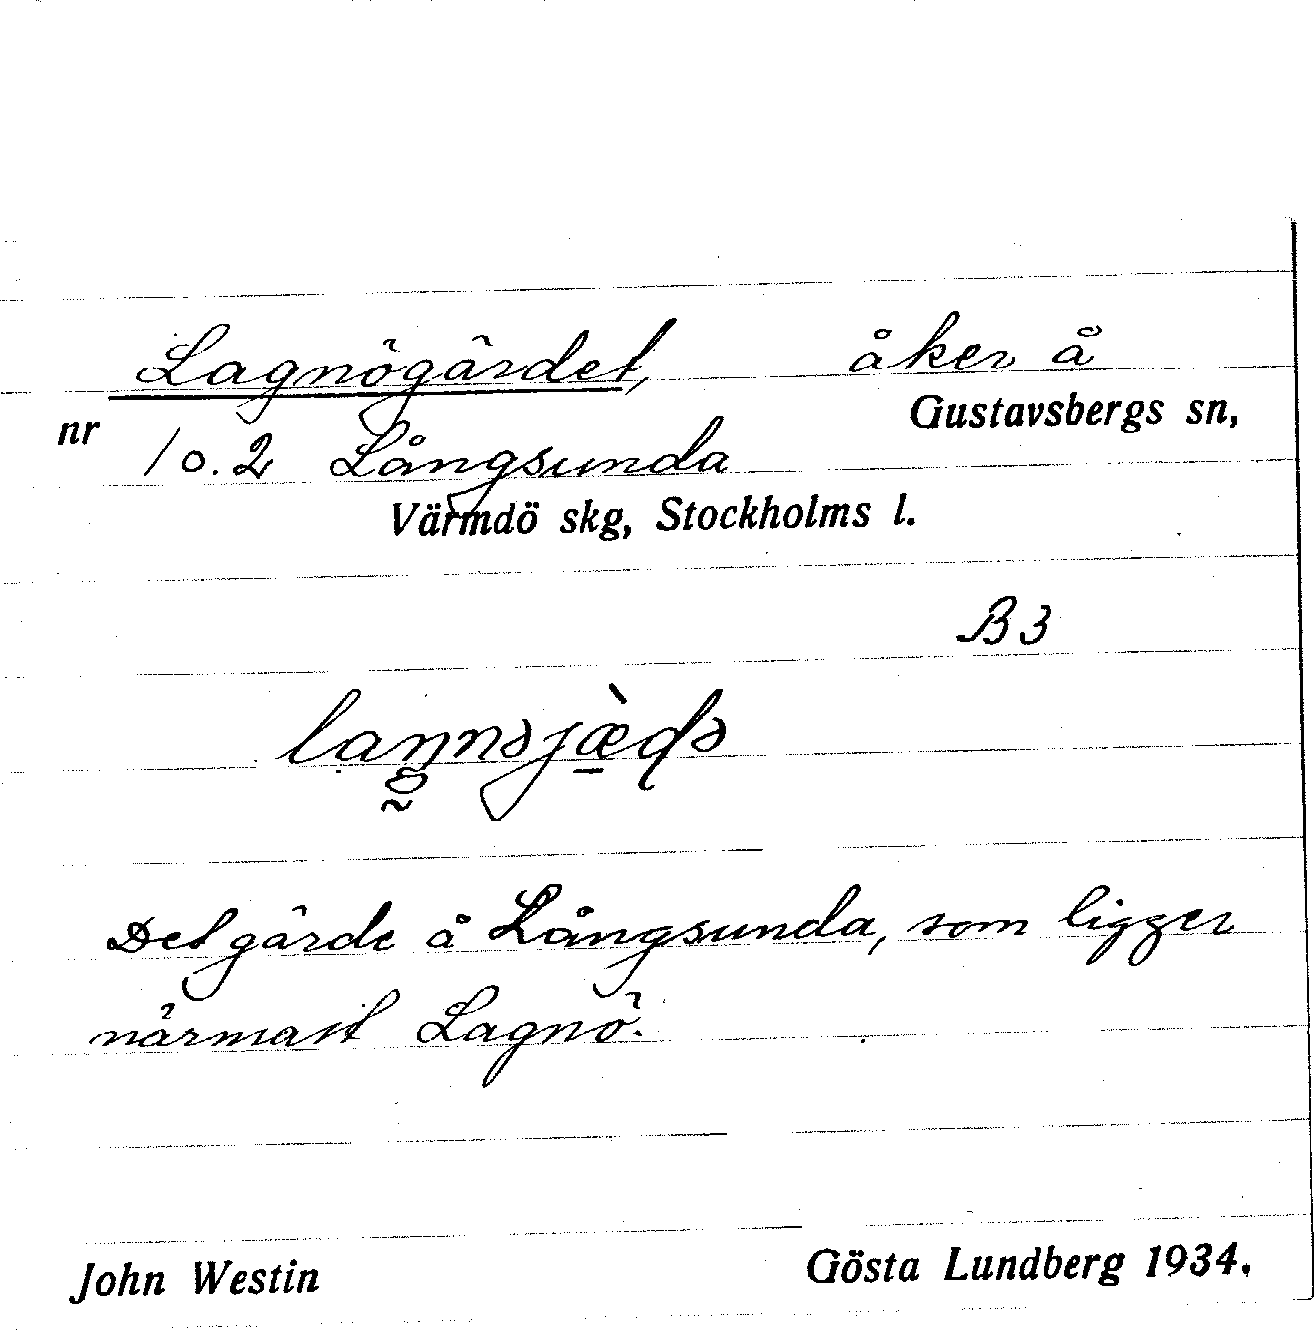 Lagnögärdet, åker å
nr Gustavsbergs sn,
1 o. 2 Långsunda
Värmdö skg, Stockholms l.
B 3
Det gärde å Långsunda, som ligger
närmast Lagnö.
John Westin Gösta Lundberg 1934.